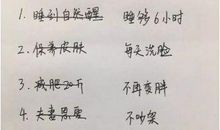 1. 睡到自然醒 睡够6小时
2. 保养皮肤 每天洗脸
3. 减肥20斤 不再变胖
4. 夫妻恩爱 不吵架